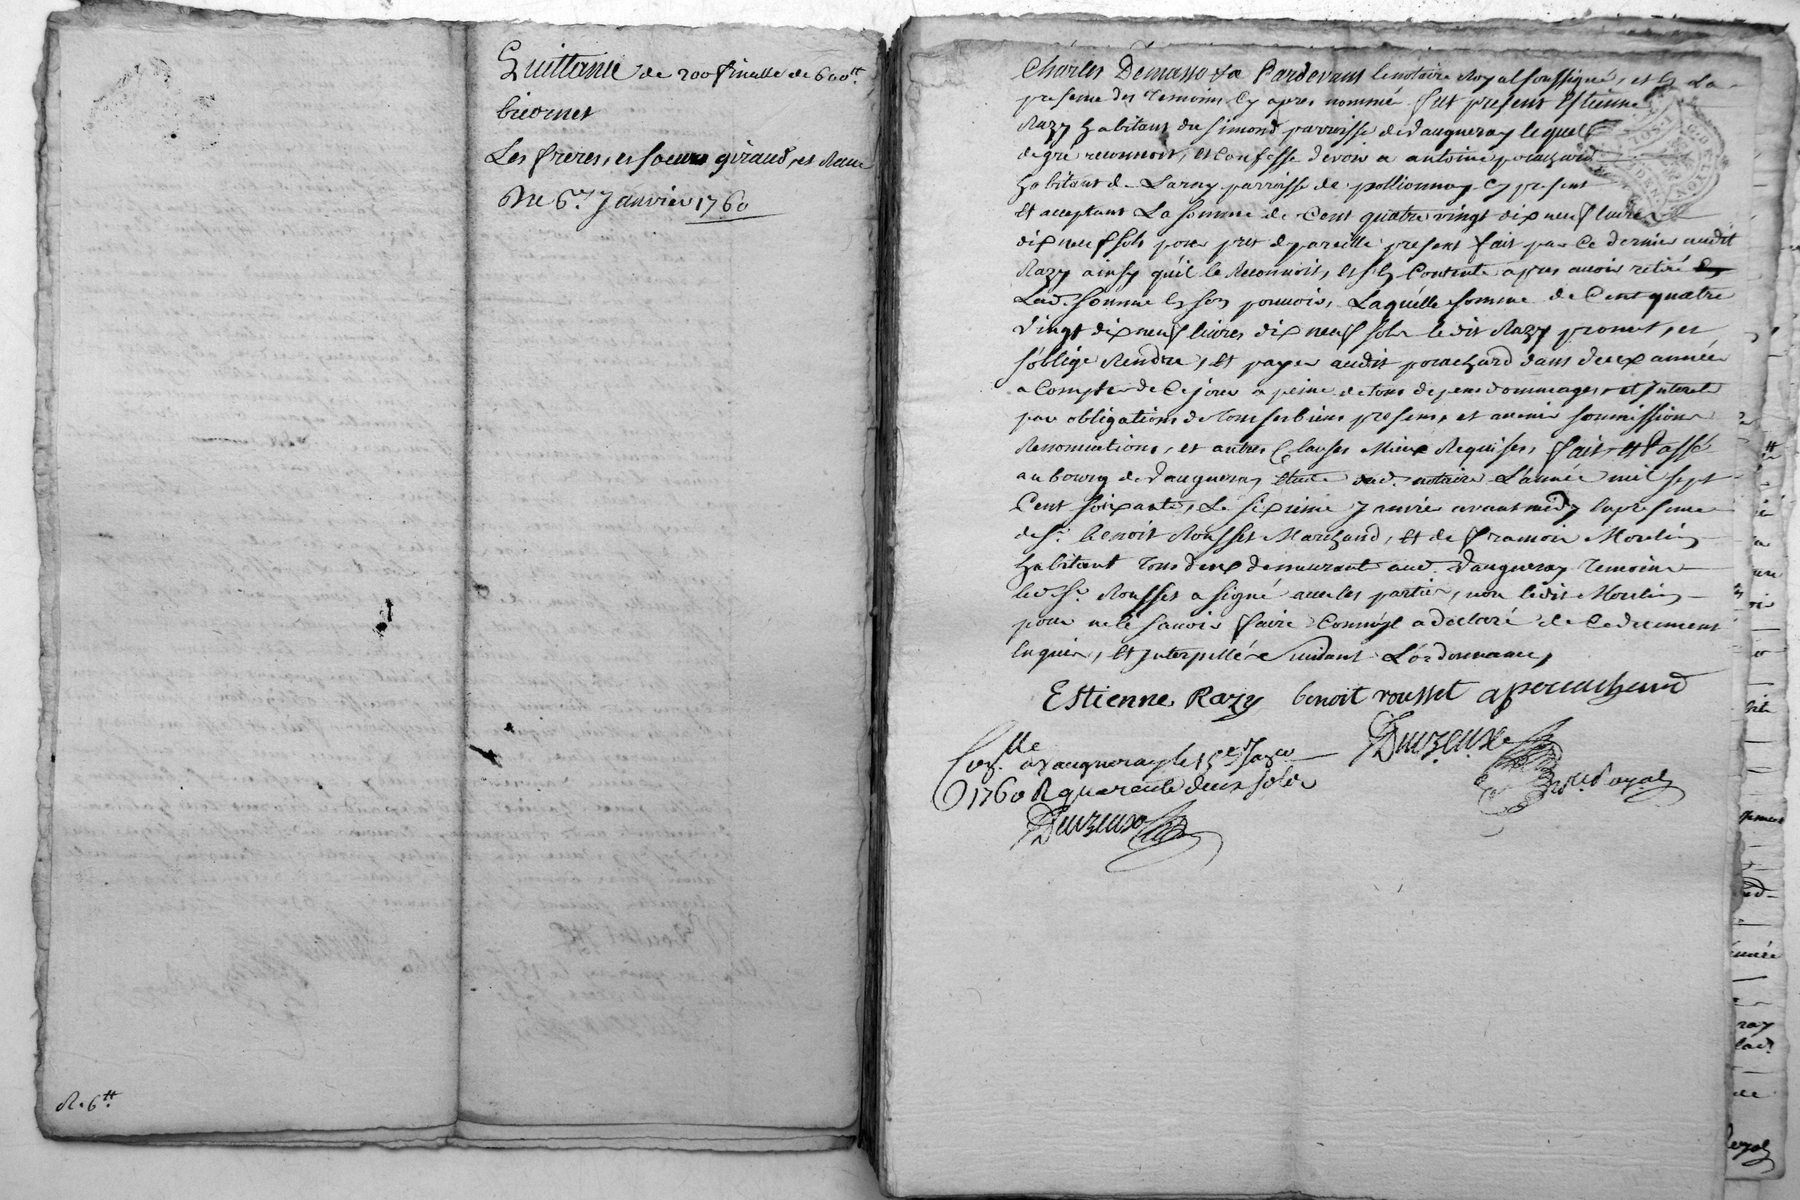 Quittance de 200 finalle de 600ᵗᵗ
bicornet
Les freres, et soeurs giraud, et Raue
Du 6.e Janvier 1760
R. 6ᵗᵗ
Pardevant le notaire Royal soussigné, et En La
presence des Temoins Cy apres nommé fut present Estienne
Razy habitant du Simond parroisse de Vaugneray lequel
de gré reconnoit, et Confesse devoir a antoine pouchard
habitant de Larny parroisse de pollionnay Cy present
Et acceptant La somme de Cent quatre vingt dix neuf livres
dix neuf sols pour pret de pareille present fait par Ce dernier audit
Razy ainsy qu'il le Reconnoit, et s'en Contente apres avoir retiré
Lad. somme En son pouvoir, Laquelle somme de Cent quatre
Vingt dix neuf livres dix neuf sols ledit Razy promet, et
s'oblige Rendre, Et payer audit pouchard dans deux année
a Compter de Ce jour a peine de tous depens dommages et Interets
par obligations de Tous ses biens presens, et avenir soumissions
Renonciations, et autres Clauses Mieux Requises, fait Et Passé
au bourg de Vaugneray Etude dud. notaire L'année mil sept
Cent soixante, Le sixieme Janvier avant midy En presence
de Sr. benoit Rousset Marchand, Et de francois Moulin
habitant Tous deux demeurants aud. Vaugneray Temoins
led. Sr. Rousset a signé avec les parties, non ledit Moulin
pour ne le savoir faire Comm'il a declaré de Ce duement
Enquis, Et Interpellé Suivant L'ordonnance,
Estienne Razy benoit rousset a pouchard
Con.lle a Vaugneray le 15e
1760 R quarente deux sols